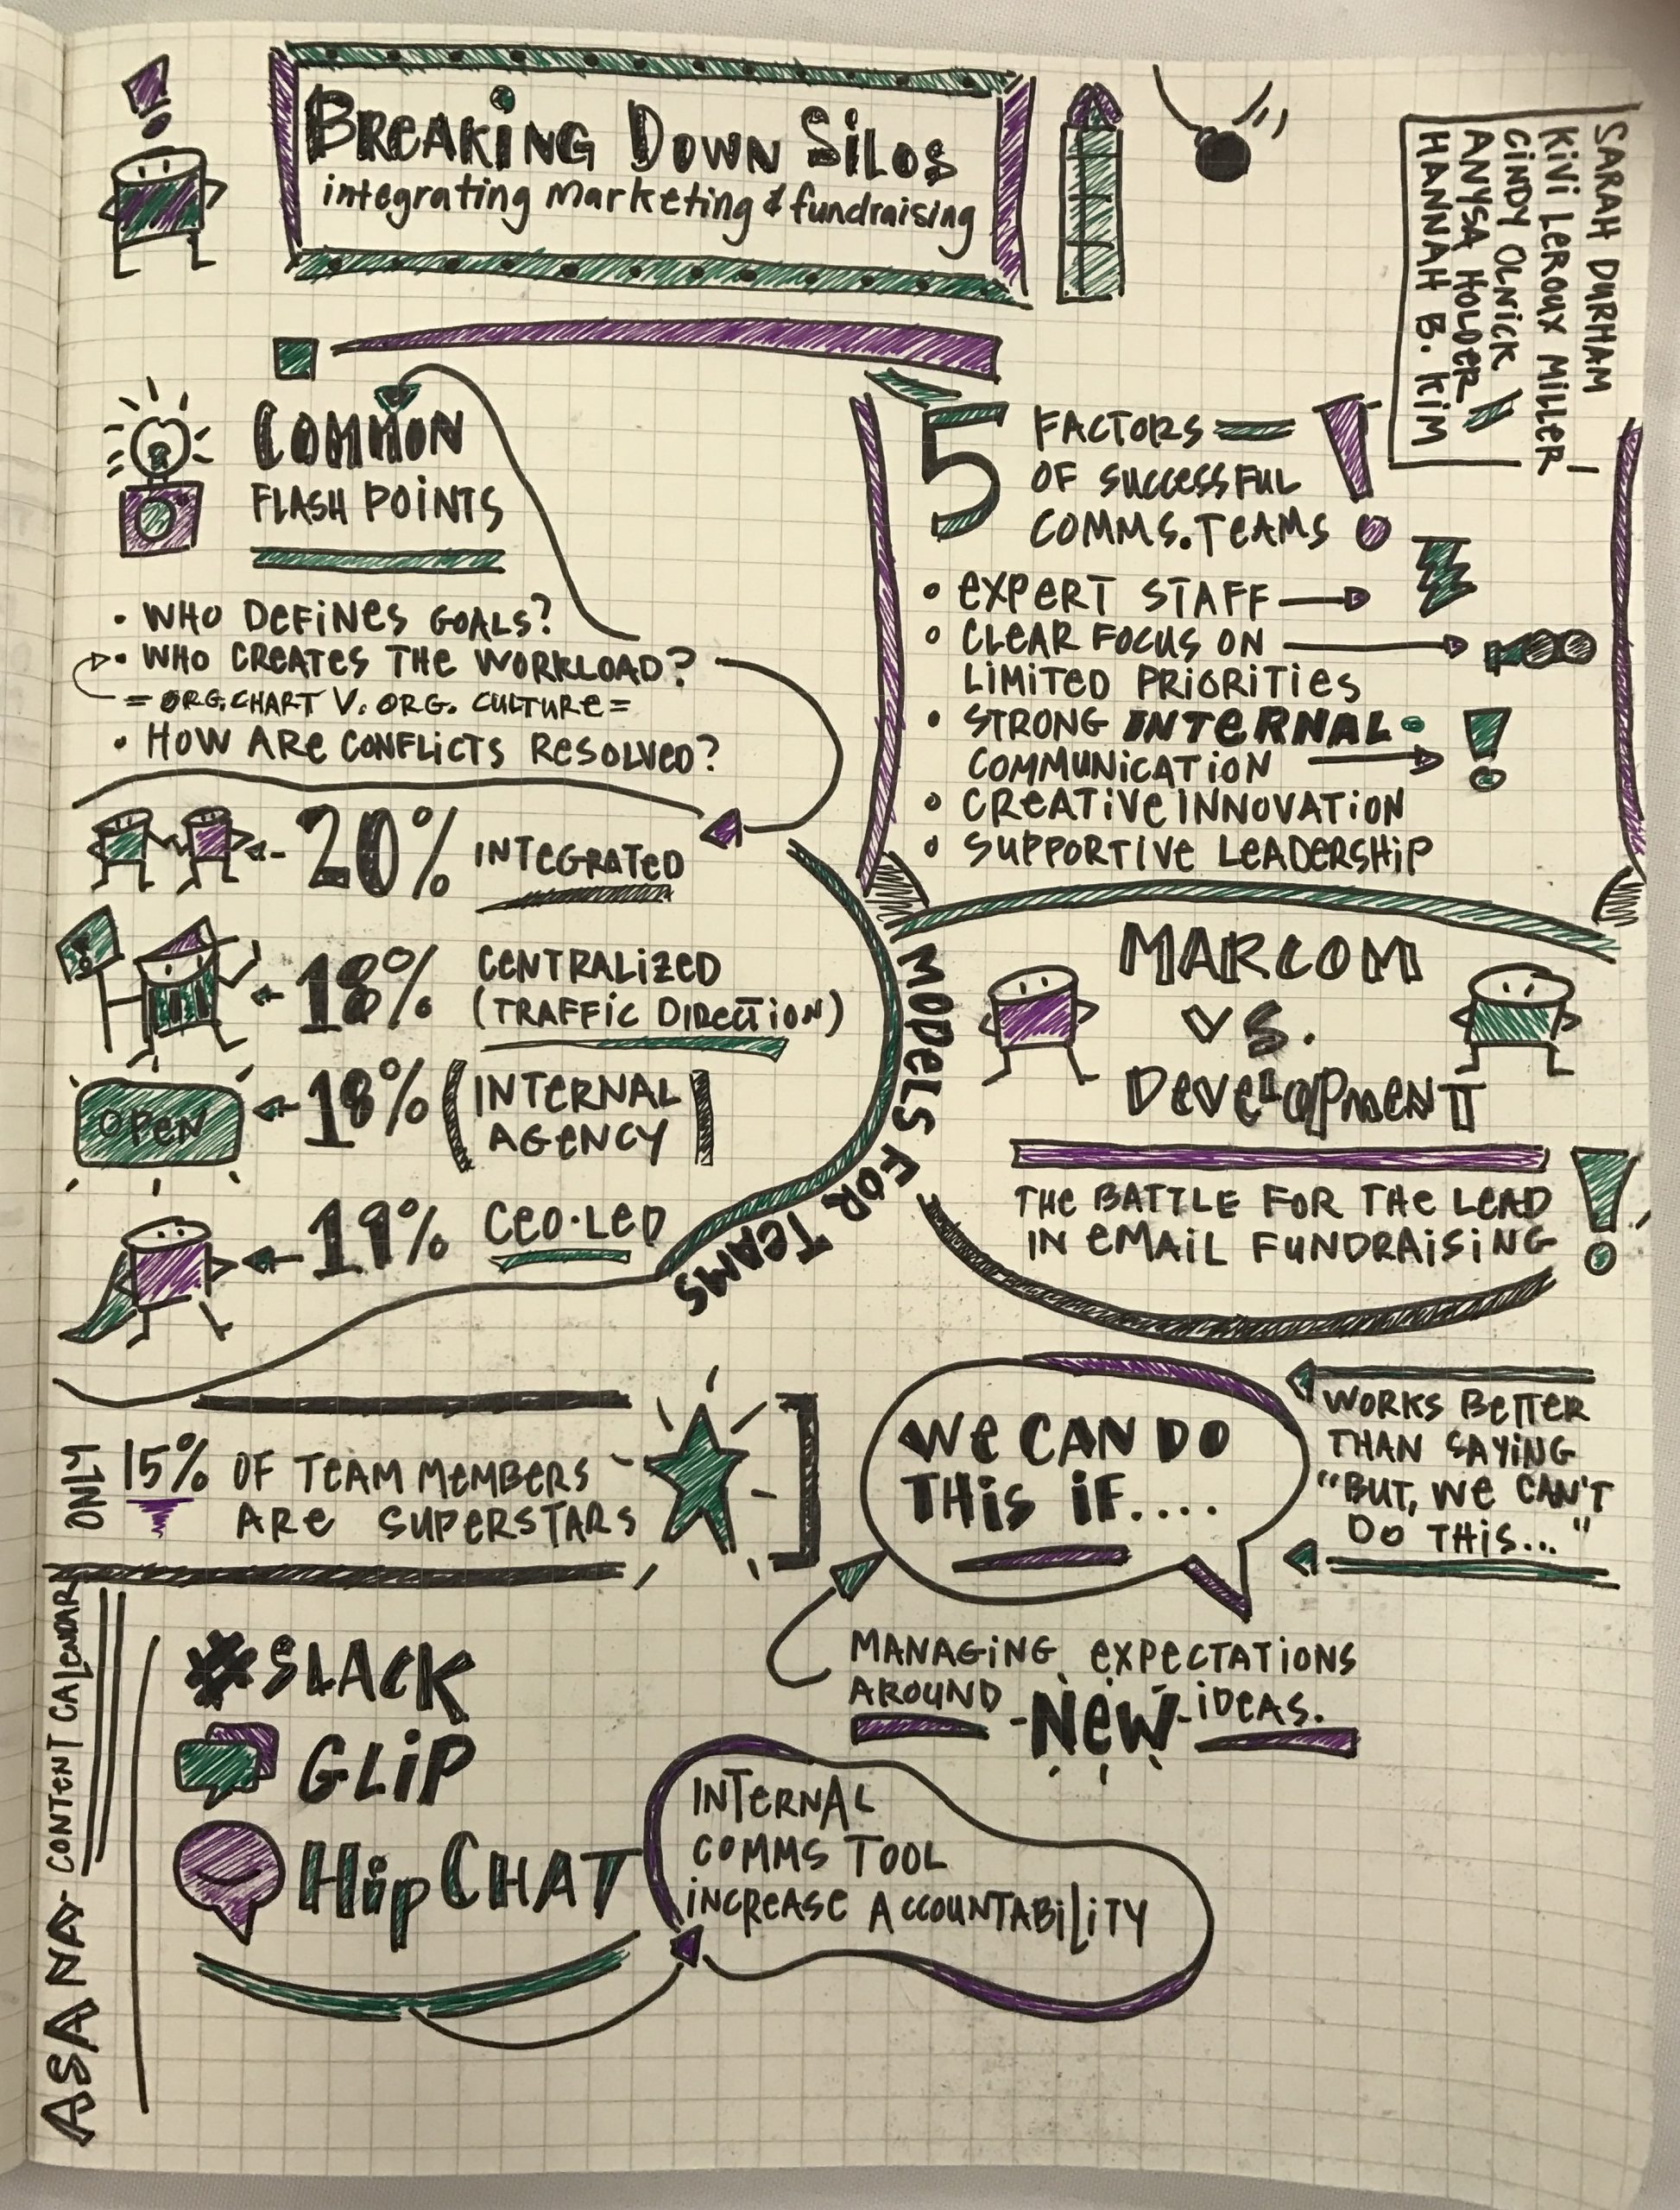 BREAKING DOWN SILOS
integrating marketing & fundraising
SARAH DURHAM
KIVI LEROUX MILLER
CINDY OLNICK
ANYSA HOLDER
HANNAH B. KIM
COMMON
FLASH POINTS
• WHO DEFINES GOALS?
• WHO CREATES THE WORKLOAD?
= ORG. CHART V. ORG. CULTURE =
• HOW ARE CONFLICTS RESOLVED?
5 FACTORS
OF SUCCESSFUL
COMMS. TEAMS
• EXPERT STAFF
• CLEAR FOCUS ON
LIMITED PRIORITIES
• STRONG INTERNAL
COMMUNICATION
• CREATIVE INNOVATION
• SUPPORTIVE LEADERSHIP
20% INTEGRATED
18% CENTRALIZED
(TRAFFIC DIRECTION)
OPEN
18% INTERNAL
AGENCY
19% CEO·LED
MODELS FOR TEAMS
MARCOM
VS.
DEVELOPMENT
THE BATTLE FOR THE LEAD
IN EMAIL FUNDRAISING
ONLY
15% OF TEAM MEMBERS
ARE SUPERSTARS
WE CAN DO
THIS IF....
WORKS BETTER
THAN SAYING
"BUT, WE CAN'T
DO THIS..."
MANAGING EXPECTATIONS
AROUND -NEW- IDEAS.
ASANA - CONTENT CALENDAR
#SLACK
GLIP
HipCHAT
INTERNAL
COMMS TOOL
INCREASE ACCOUNTABILITY